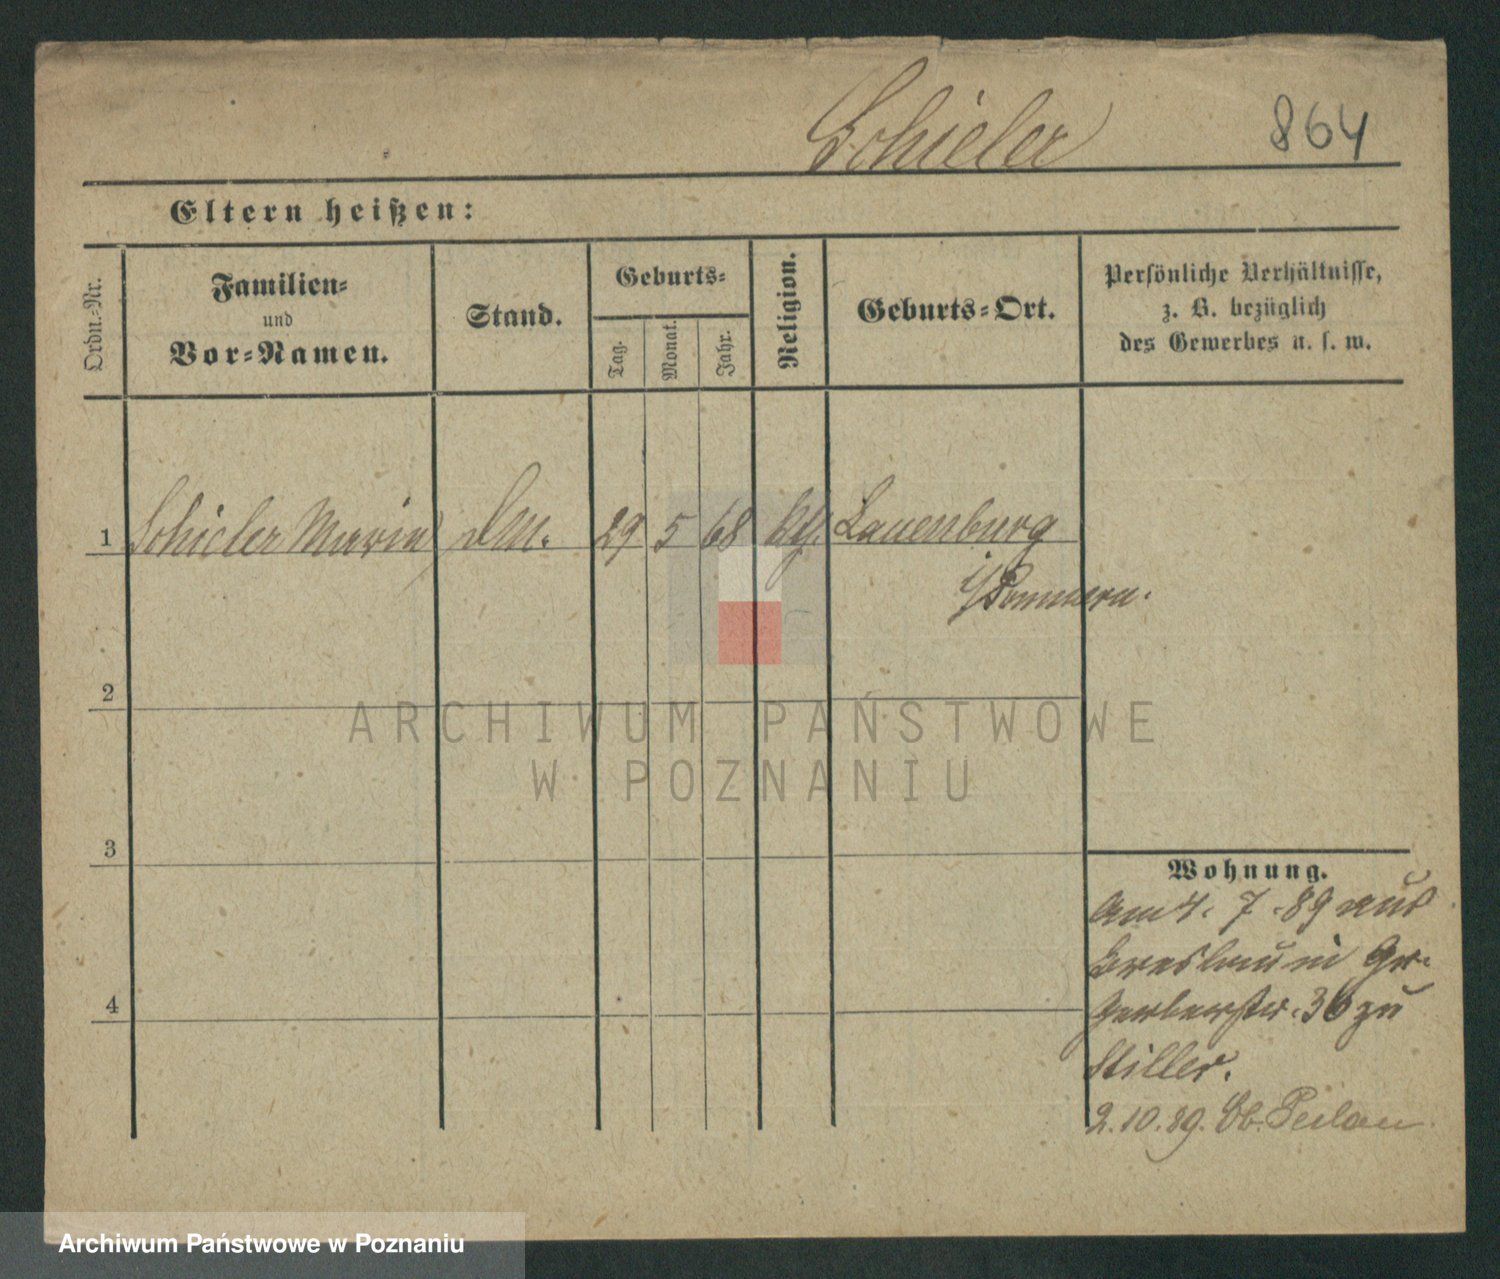 Schieler
864
Eltern heißen:
Ordn.-Nr.
Familien-
und
Vor-Namen.
Stand.
Geburts-
Tag.
Monat.
Jahr.
Religion.
Geburts-Ort.
Persönliche Verhältnisse,
z. B. bezüglich
des Gewerbes u. s. w.
1 Schieler Maria 29 5 68 kth. Lauenburg
i/Pommern.
2
3
4
Wohnung.
Am 4. 7. 89 aus
Breslau in Gr.
Gerberstr. 36 zu
Stiller.
2.10.89. Ob. Peilau
ARCHIWUM PAŃSTWOWE
W POZNANIU
Archiwum Państwowe w Poznaniu